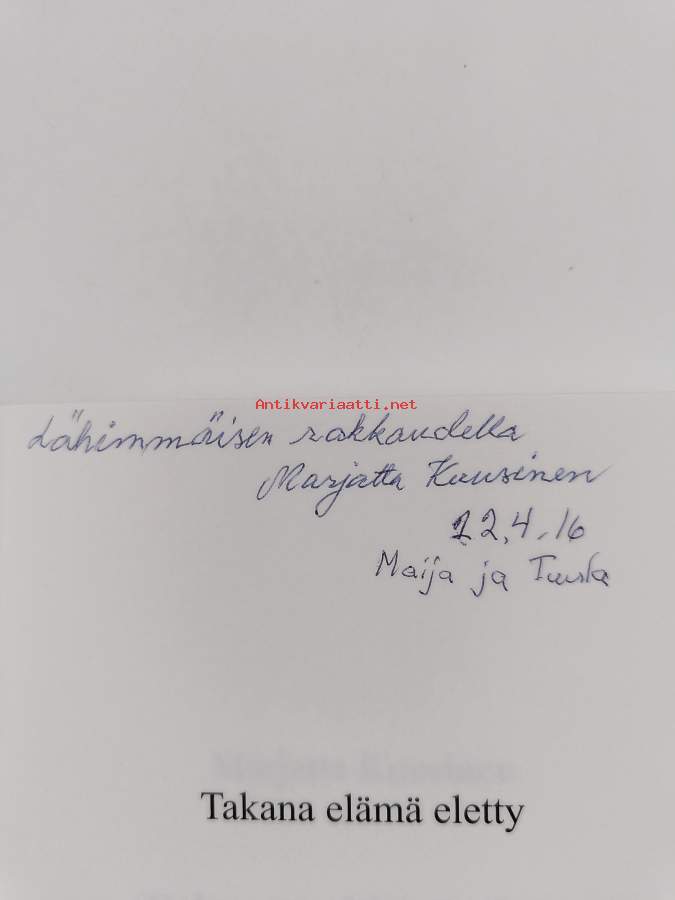 Antikvariaatti.net
Lähimmäisen rakkaudella
Marjatta Kuusinen
22.4.16
Maija ja
Takana elämä eletty